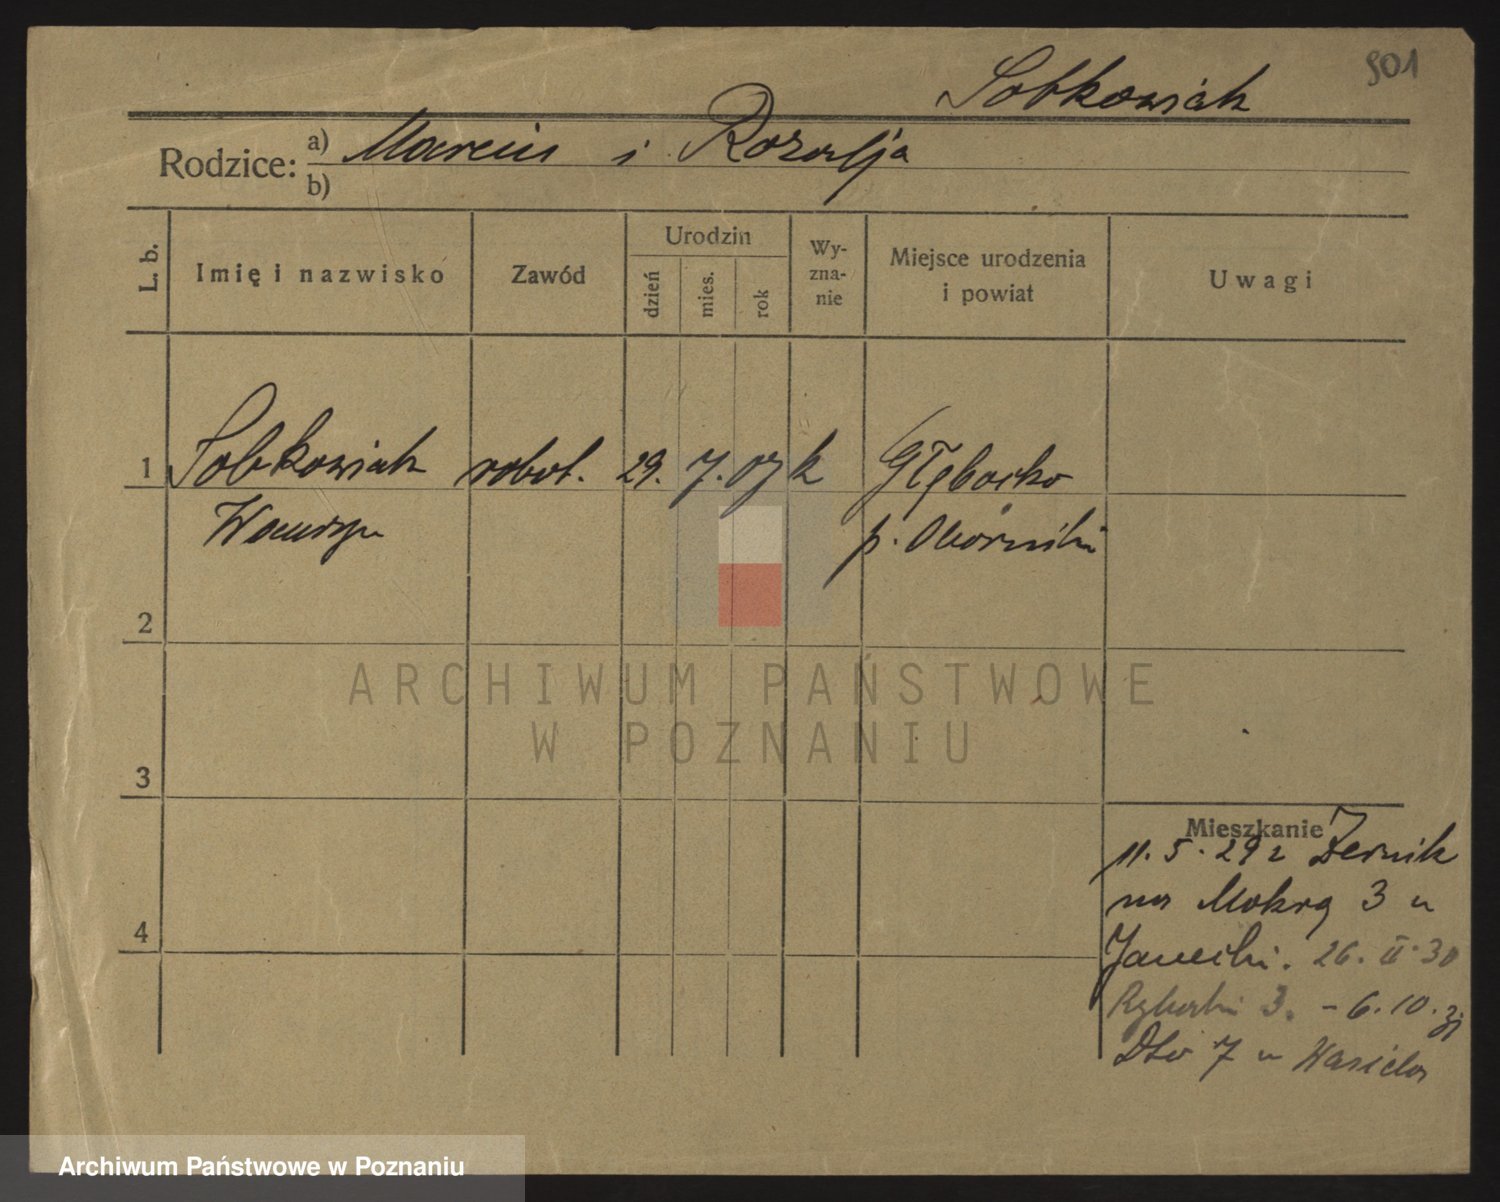 901
Sobkowiak
Rodzice: a) Marcin i Rozalja
b)
L. b.
Imię i nazwisko
Zawód
Urodzin
dzień
mies.
rok
Wy-
zna-
nie
Miejsce urodzenia
i powiat
Uwagi
1 Sobkowiak robot. 29. 7. 07 k Głęboczko
Wawrzyn p. Oborniki
2
3
4
ARCHIWUM PAŃSTWOWE
W POZNANIU
Mieszkanie
11. 5. 29 z Żernik
na Mokrą 3 u
Janecki. 26. II. 30
Rybaki 3. - 6. 10. 31
Dto 7 u
Archiwum Państwowe w Poznaniu